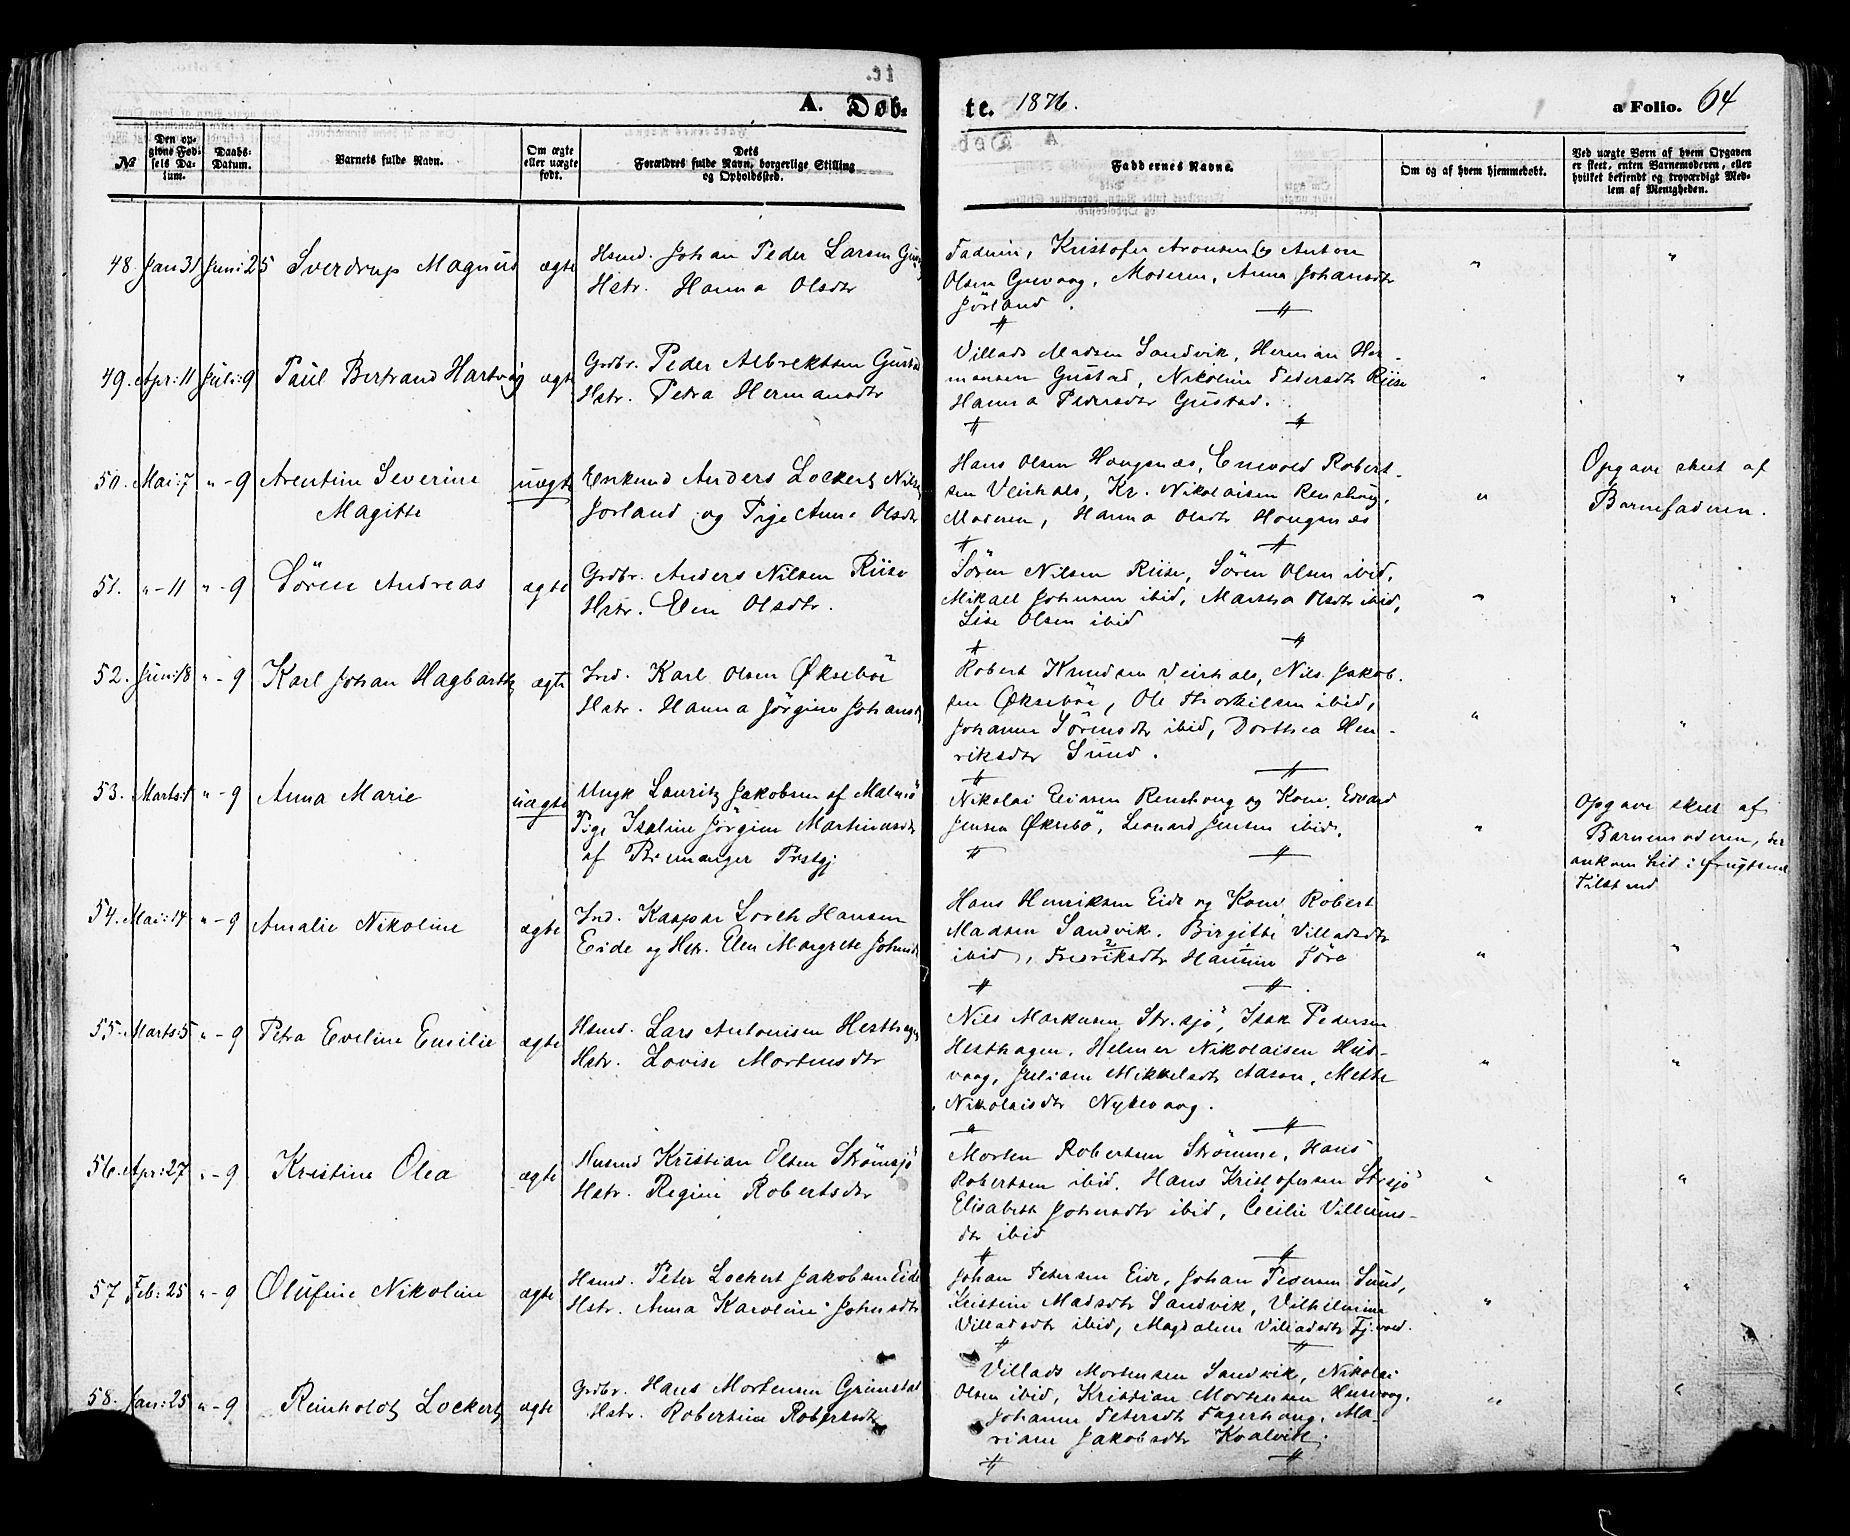 A. Døb-
te. 1876.
a Folio. 64
№
Den op-
givne Fød-
sels Da-
tum.
Daabs-
Datum.
Barnets fulde Navn.
Om ægte
eller uægte
født.
Dets
Forældres fulde Navn, borgerlige Stilling
og Opholdssted.
Faddernes Navne.
Om og af hvem hjemmedøbt.
Ved uægte Børn af hvem Opgaven
er skeet, enten Barnemoderen, eller
hvilket bekjendt og troværdigt Med-
lem af Menigheden.
48. Jan 31 Juni: 25 Sverdrup Magnus ægte
Hsmd. Johan Peder Larsen
Hstr. Hanna Olsdtr
Faderen, Kristofer Aronsen og Anton
Olsen Guvaag, Moderen, Anna Johansdtr
Jørland.
49. Apr: 11 Juli: 9 Paul Bertrand Hartvig ægte
Grdbr. Peder Albrektsen Gustad
Hstr. Petra Hermansdtr
Villads Madsen Sandvik, Herman Her-
mansen Gustad, Nikoline Pedersdtr Riise
Hanna Pedersdtr Gustad.
50. Mai: 7 " - 9 Arentine Severine
Magitte
uægte
Enkemd Anders Lockert Nils
Jorland og Pige Anne Olsdtr
Hans Olsen Hougsnæs, Enevold Robert-
sen Veirhals, Kr. Nikolaisen Renshoug,
Moderen, Hanna Olsdtr Hougsnæs
Opgave skeet af
Barnefaderen.
51. " - 11 " - 9 Søren Andreas ægte
Grdbr. Anders Nilsen Riise
Hstr. Elen Olsdtr.
Søren Nilsen Riise, Søren Olsen ibid,
Mikael Johnsen ibid, Martha Olsdtr ibid,
Lise Olsen ibid
52. Juni: 18 " - 9 Karl Johan Hagbarth ægte
Ind. Karl Olsen Øksebøe
Hstr. Hanna Jörgine Johansd
Robert Knudsen Veirhals, Nils Jakob-
sen Øksebøe, Ole Thorkilsen ibid,
Johanna Sörensdtr ibid, Dorthea Hen-
riksdtr Sund.
53. Marts: 1 " - 9 Anna Marie uægte
Ungk Lauritz Jakobsen af Malmö
Pige Isaline Jørgine Martinusdtr
af Bremanger Prstgj
Nikolai Eliasen Renshoug og Kone, Edvard
Jensen Øksebö, Leonard Jensen ibid.
Opgave skeet af
Barnemoderen, der
ankom hid i frugtsom
Tilstand
54. Mai: 14 " - 9 Amalie Nikoline ægte
Ind. Kaspar Loreth Hansen
Eide og Hstr. Elen Margrete Johnsd
Hans Henriksen Eide og Kone Robert
Madsen Sandvik. Birgitte Villadsdtr
ibid, Fredriksdtr Hansine Före
55. Marts: 5 " - 9 Petra Eveline Emilie ægte
Hsmd. Lars Antonisen Hesthagen
Hstr. Lovise Mortensdtr
Nils Markusen Str.sjö, Isak Pedersen
Hesthagen, Helmer Nikolaisen Hus-
vaag, Juliane Mikkelsdtr Aason, Mette
Nikolaisdtr Nykvaag.
56. Apr: 27 " - 9 Kristine Olea ægte
Husmd Kristian Olsen Strömsjö
Hstr. Regine Robertsdtr
Morten Robertsen Strömme, Hans
Robertsen ibid, Hans Kristofersen Strsjö
Elisabeth Johnsdtr ibid, Cecilie Villums-
dtr ibid
57 Feb: 25 " - 9 Olufine Nikoline ægte
Hsmd. Peter Lockert Jakobsen Eide
Hstr. Anna Karoline Johnsdtr
Johan Petersen Eide, Johan Pedersen Sund,
Kristine Madsdtr Sandvik, Vilhelmine
Villadsdtr ibid, Magdalene Villadsdtr Fj.vold.
58. Jan: 25 " - 9 Reinholdt Lockert ægte
Grdbr. Hans Mortensen Grimstad
Hstr. Robertine Robertsdtr
Villads Mortensen Sandvik, Nikolai
Olsen ibid, Kristian Mortensen Husvaag,
Johanne Petersdtr Fagerhoug, Ma-
riane Jakobsdtr Kvalvik.